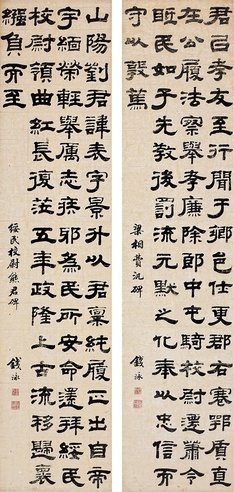 君㠯孝友至行聞于鄉邑仕更郡右謇鄂質直
在公履法察舉孝廉除郎中屯騎校尉遷蕭令
眡民如子先教後罰流元默之化奉以忠信而
守以敦篤
梁相費汎碑
錢泳
山陽劉君諱表字景升以君稟純履正出自帝
宇緬榮輕舉厲志疾邪為民所安命遷拜綏民
校尉領曲紅長復蒞五年政隆上古流移歸褱
繦負而至
綏民校尉熊君碑
錢泳